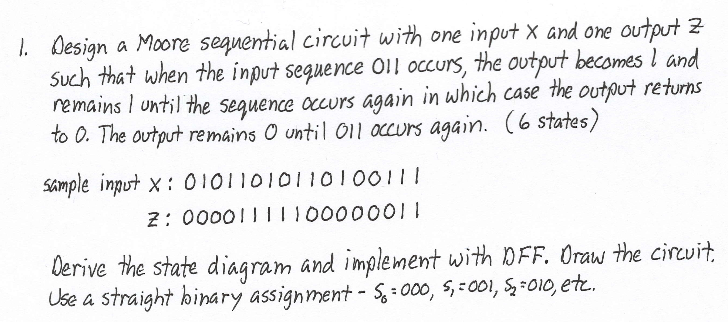 1. Design a Moore sequential circuit with one input X and one output Z
such that when the input sequence 011 occurs, the output becomes 1 and
remains 1 until the sequence occurs again in which case the output returns
to 0. The output remains 0 until 011 occurs again. (6 states)
sample input X: 01011010110100111
Z: 00001111100000011
Derive the state diagram and implement with DFF. Draw the circuit.
Use a straight binary assignment - S₀=000, S₁=001, S₂=010, etc.